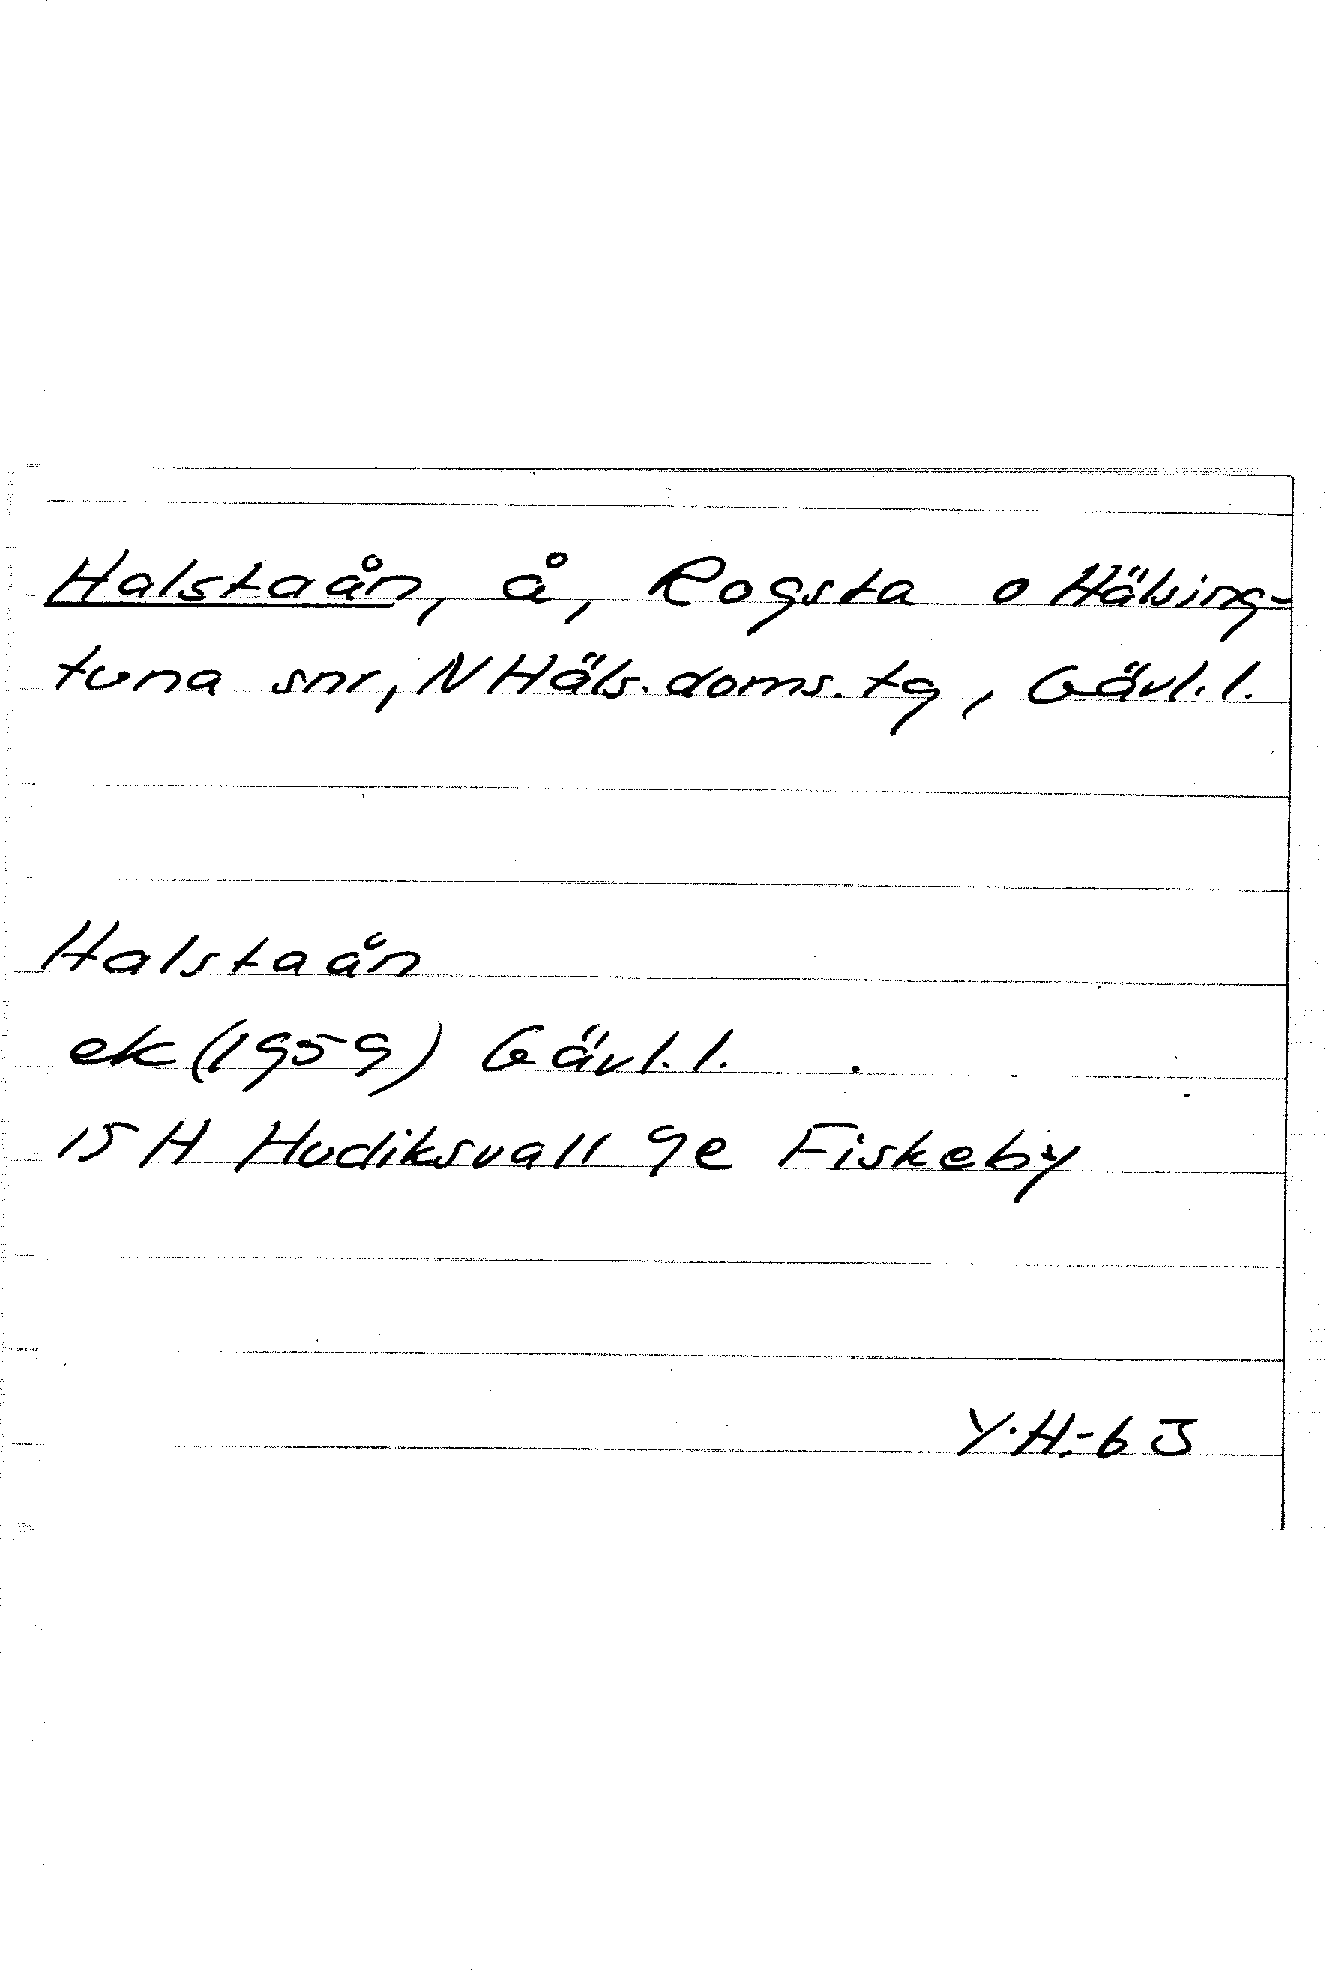 Halstaån, å, Rogsta o Hälsing-
tuna snr, N Häls. doms. tg, Gävl. l.
Halstaån
ek (1959) Gävl. l.
15 H Hudiksvall 9e Fiskeby
Y.H.-63